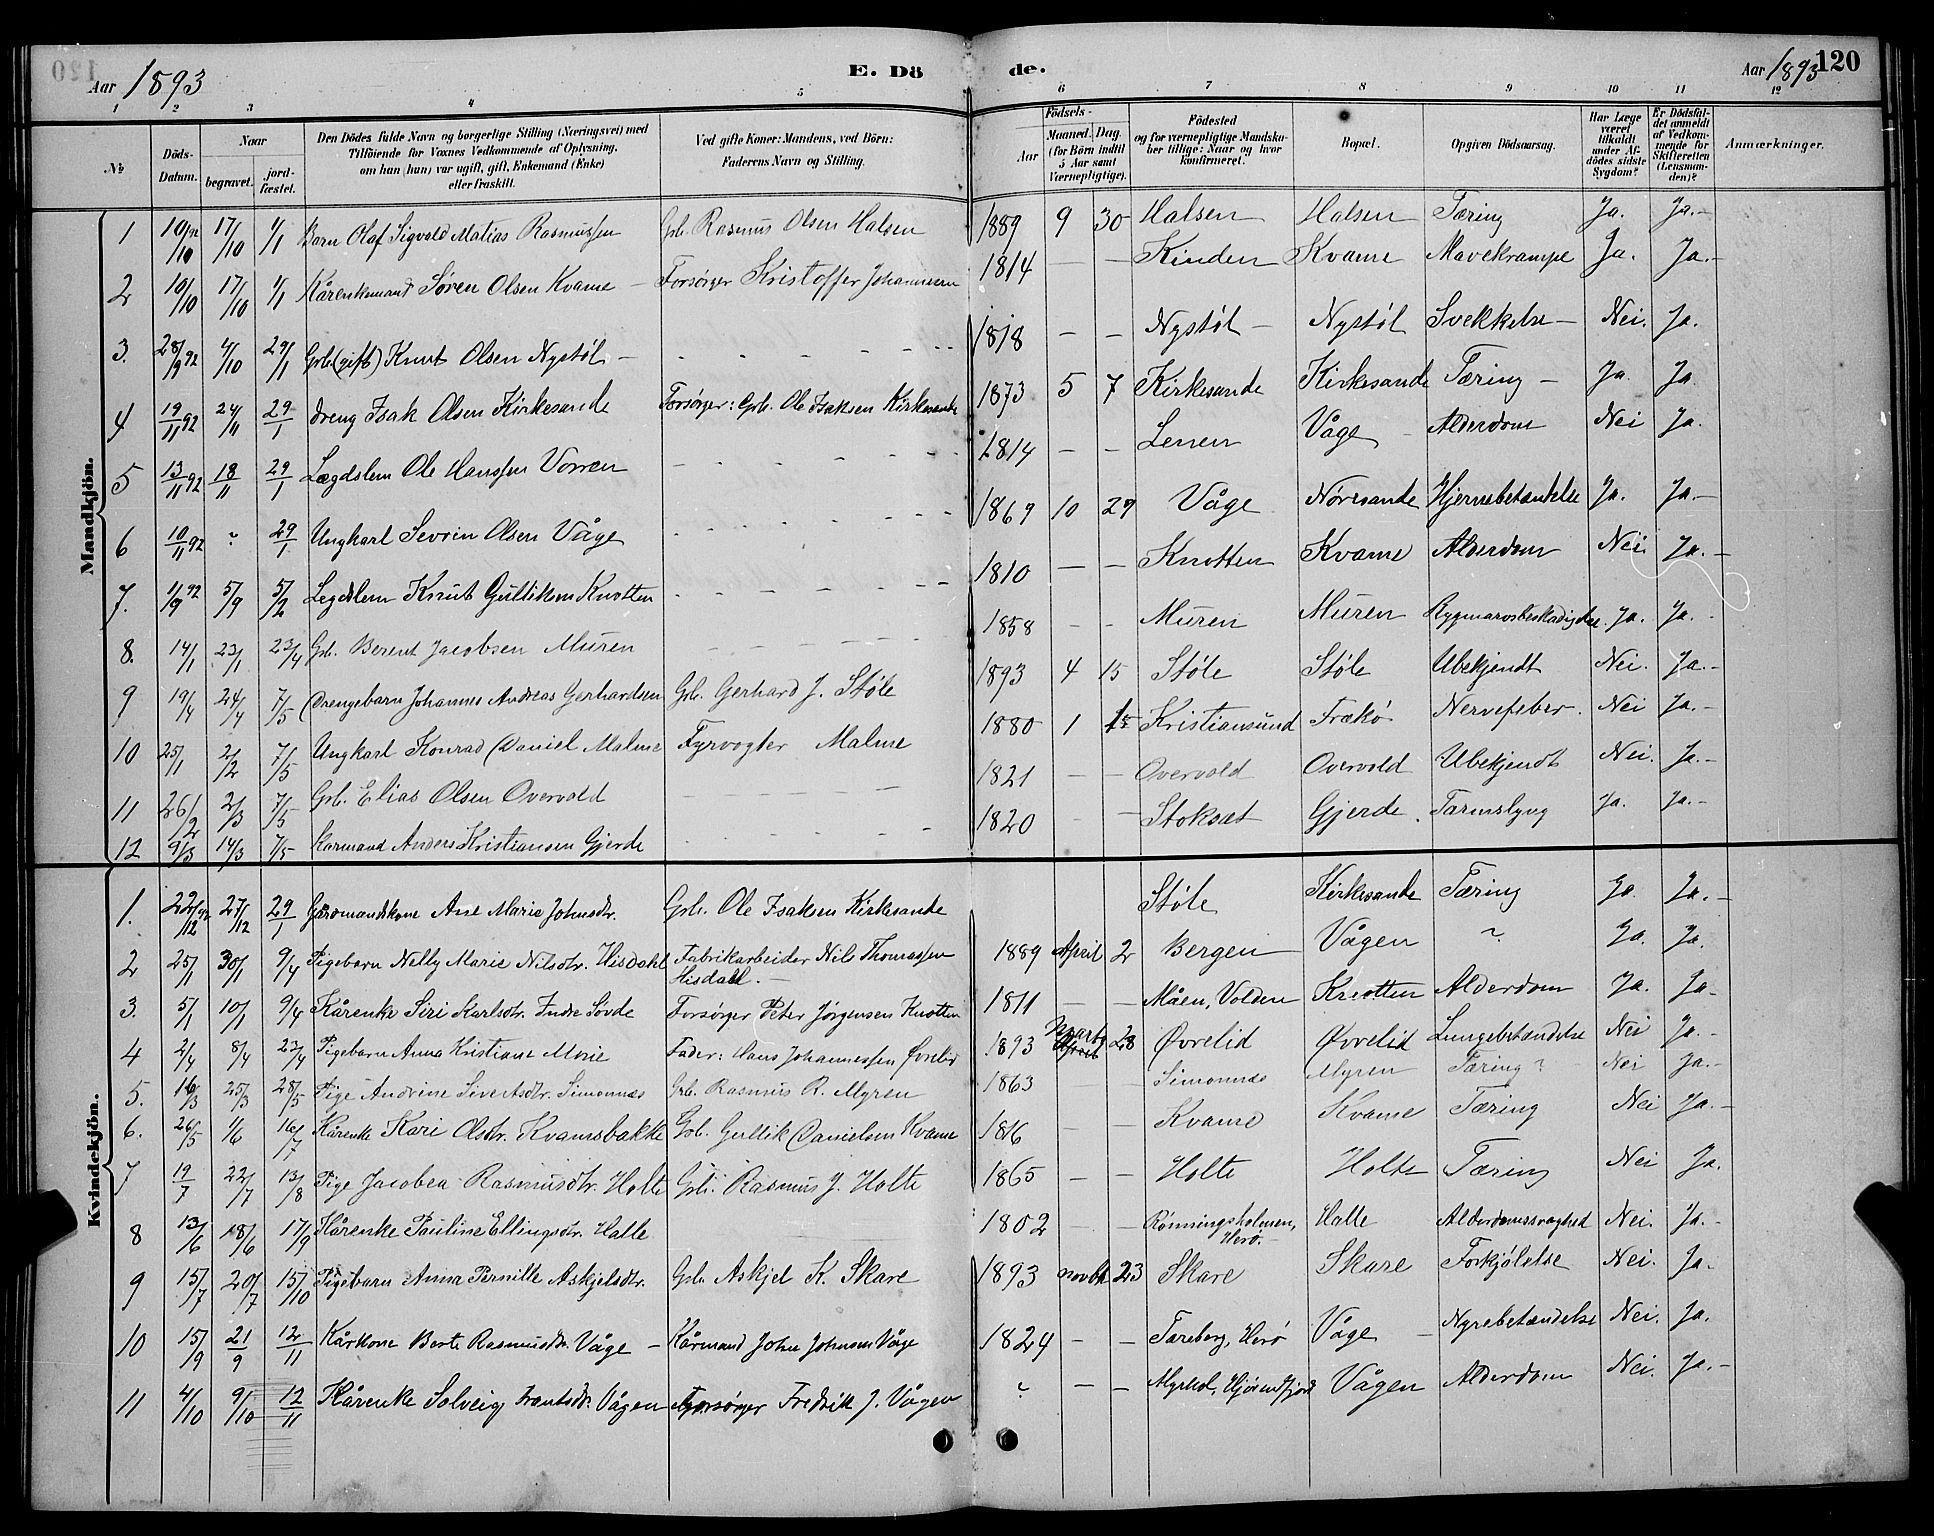 120
Aar 1893
E. Dö
de.
Aar 1893
120
1 2 3 4 5 6 7 8 9 10 11 12
No
Döds-Datum.
Naar
begravet.
jord-fæstet.
Den Dödes fulde Navn og borgerlige Stilling (Næringsvei) med
Tilföiende for Voxnes Vedkommende af Oplysning,
om han (hun) var ugift, gift, Enkemand (Enke)
eller fraskilt.
Ved gifte Koner: Mandens, ved Börn:
Faderens Navn og Stilling.
Födsels-
Aar
Maaned. Dag.
(for Börn indtil
5 Aar samt
Værnepligtige).
Födested
og for værnepligtige Mandska-
ber tillige: Naar og hvor
konfirmeret.
Bopæl.
Opgiven Dödsaarsag.
Har Læge
været
tilkaldt
under Af-
dödes sidste
Sygdom?
Er Dödsfal-
det anmeldt
af Vedkom-
mende for
Skifteretten
(Lensman-
den)?
Anmærkninger.
Mandkjön.
1 10/10 92 17/10 1/1 Barn Olaf Sigvald Matias Rasmussen Grb. Rasmus Olsen Halsen 1889 9 30 Halsen Halsen Tæring Ja. Ja.-
2 10/10 17/10 1/1 Kårenkemand Søren Olsen Kvame - Forsørger Kristoffer Johannesen 1814 - - Kinden Kvame Mavekrampe Ja. Ja.-
3. 28/9 92 4/10 29/1 Grb. (gift) Knut Olsen Nystøl - 1818 - - Nystøl - Nystøl Svekkelse - Nei. Ja.
4 19/11 92 24/11 29/1 Dreng Isak Olsen Kirkesande Forsørger: Grb. Ole Isaksen Kirkesande 1873 5 7 Kirkesande Kirkesande Tæring - Ja. Ja
5 13/11 92 18/11 29/1 Lægdslem Ole Hanssen Vorren 1814 - - Lenen Våge Alderdom Nei Ja.
6 10/11 92 ~ 29/1 Ungkarl Sevrin Olsen Våge 1869 10 29 Våge Nøresande Hjernebetændelse Ja. Ja.-
7. 1/9 92 5/9 5/2 Legdslem Knut Gulliksen Knotten 1810 - - Knotten Kvame Alderdom Nei. Ja.-
8. 14/1 23/1 23/4 Grb. Berent Jacobsen Muren 1858 - - Muren Muren Rygmarvsbeskadigelse. Ja. Ja.-
9 19/4 24/4 7/5 Drengebarn Johannes Andreas Gerhardsen Grb. Gerhard J. Støle 1893 4 15 Støle Støle Ubekjendt Nei. Ja.-
10 25/1 2/2 7/5 Ungkarl Konrad Daniel Malme Fyrvogter Malme 1880 1 15 Kristiansund Frækø Nervefeber. Nei Ja.-
11 26/2 2/3 7/5 Grb. Elias Olsen Overvold 1821 - - Overvold Overvold Ubekjendt Nei. Ja.-
12 9/3 14/3 7/5 Karmand Anders Kristiansen Gjerde 1820 - - Stokset Gjerde. Tarmslyng Ja. Ja.-
Kvindekjön.
1. 22/12 92 27/12 29/1 Gårmandskone Ane Marie Johnsdtr. Grb. Ole Isaksen Kirkesande Støle Kirkesande Tæring Ja. Ja.-
2 25/1 30/1 9/4 Pigebarn Nelly Marie Nilsdtr. Hisdahl Fabrikarbeider Nils Thomassen
Hisdahl.- 1889 April 2 Bergen Vågen ~ Ja. Ja.
3. 5/1 10/1 9/4 Kårenke Siri Karlsdtr. Indre Søvde Forsørger Peter Jørgensen Knotten 1811 - - Måen, Volden Knotten Alderdom Ja. Ja-
4 2/4 8/4 23/4 Pigebarn Anna Kristiane Marie Fader: Hans Johannessen Øvrelid 1893 Marts April 28 Øvrelid Øvrelid Lungebetændelse Nei Ja.-
5. 16/3 25/3 28/5 Pige Andrine Sivertsdtr. Simonnæs Grb. Rasmus R. Myren 1863 - - Simonnæs Myren Tæring? Nei Ja.-
6. 26/5 1/6 16/7 Kårenke Kari Olsdtr. Kvamsbakke Grb. Gullik Danielsen Kvame 1816 - - Kvame Kvame Tæring Nei Ja.-
7 19/7 22/7 13/8 Pige Jacobea Rasmusdtr. Holte Grb. Rasmus J. Holte 1865 - - Holte Holte Tæring Nei Ja.
8 13/6 18/6 17/9 Kårenke Pauline Ellingsdtr. Halle 1802 - - Rønningsholmen,
Herø.- Halle Alderdomssvaghed Nei. Ja.-
9 15/7 20/7 15/10 Pigebarn Anna Pernille Askjelsdtr. Grb. Askjel K. Skare 1893 novbr 23 Skare Skare Forkjølelse Nei. Ja.
10 15/9 21/9 12/11 Kårkone Berte Rasmusdtr. Våge - Kårmand John Johnsen Våge 1824 - - Tareberg, Herø Våge Nyrebetændelse Nei. Ja.
11 4/10 9/10 12/11 Kårenke Solveig Vågen Forsørger Fredrik J. Vågen ~ - - Hjørendfjord Vågen Alderdom Nei. Ja.-